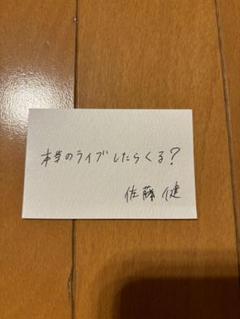 本当のライブしたらくる?
佐藤 健